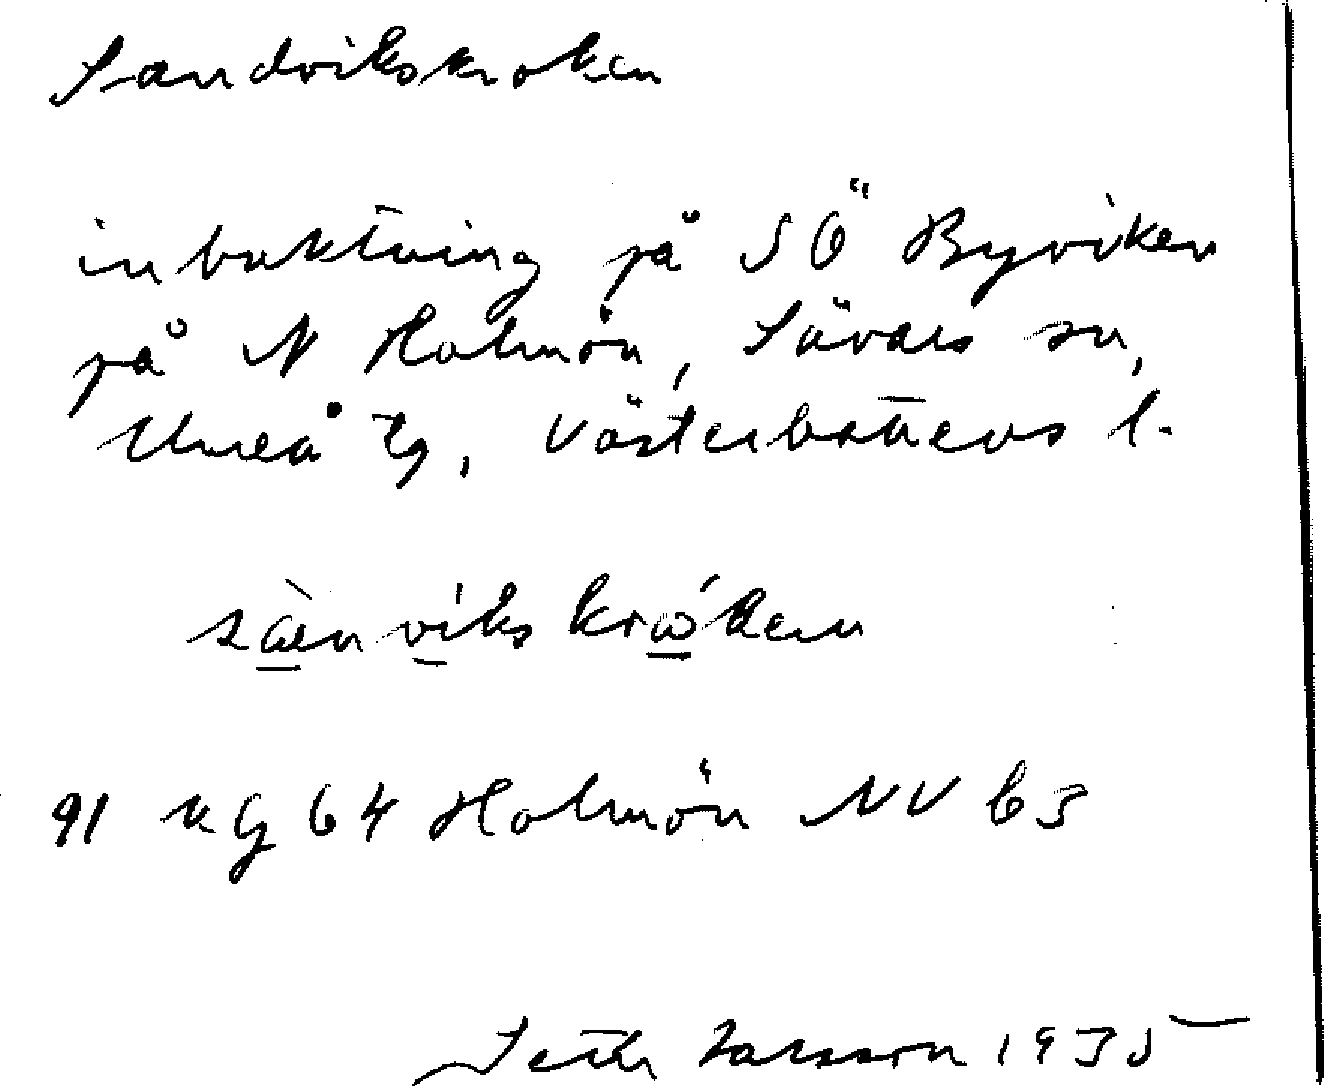 Sandvikskroken
inbuktning på SÖ Byviken
på N Holmön, Sävars sn,
Umeå tg, Västerbottens l.
sænvikskrώken
91 KG 64 Holmön NV 63
Seth Larsson 1935